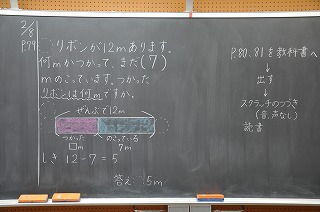 2/8
P.79
リボンが12mあります。
何mかつかって、まだ(7)
mのこっています。つかった
リボンは何mですか。
ぜんぶで12m
つかった のこっている
□m 7m
しき 12-7=5
答え 5m
P.80,81を教科書へ
↓
出す
↓
スクラッチのつづき
(音、声なし)
読書